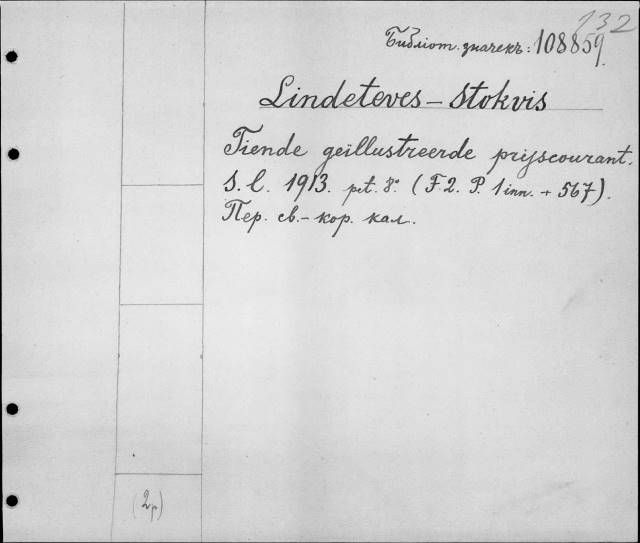 132
Библіот. значекъ: 108859.
Lindeteves - Stokvis
Tiende geïllustreerde prijscourant.
S. l. 1913. pet. 8° (F. 2. P. 1 inn. + 567).
Пер. св.-кор. кал.
(2р)